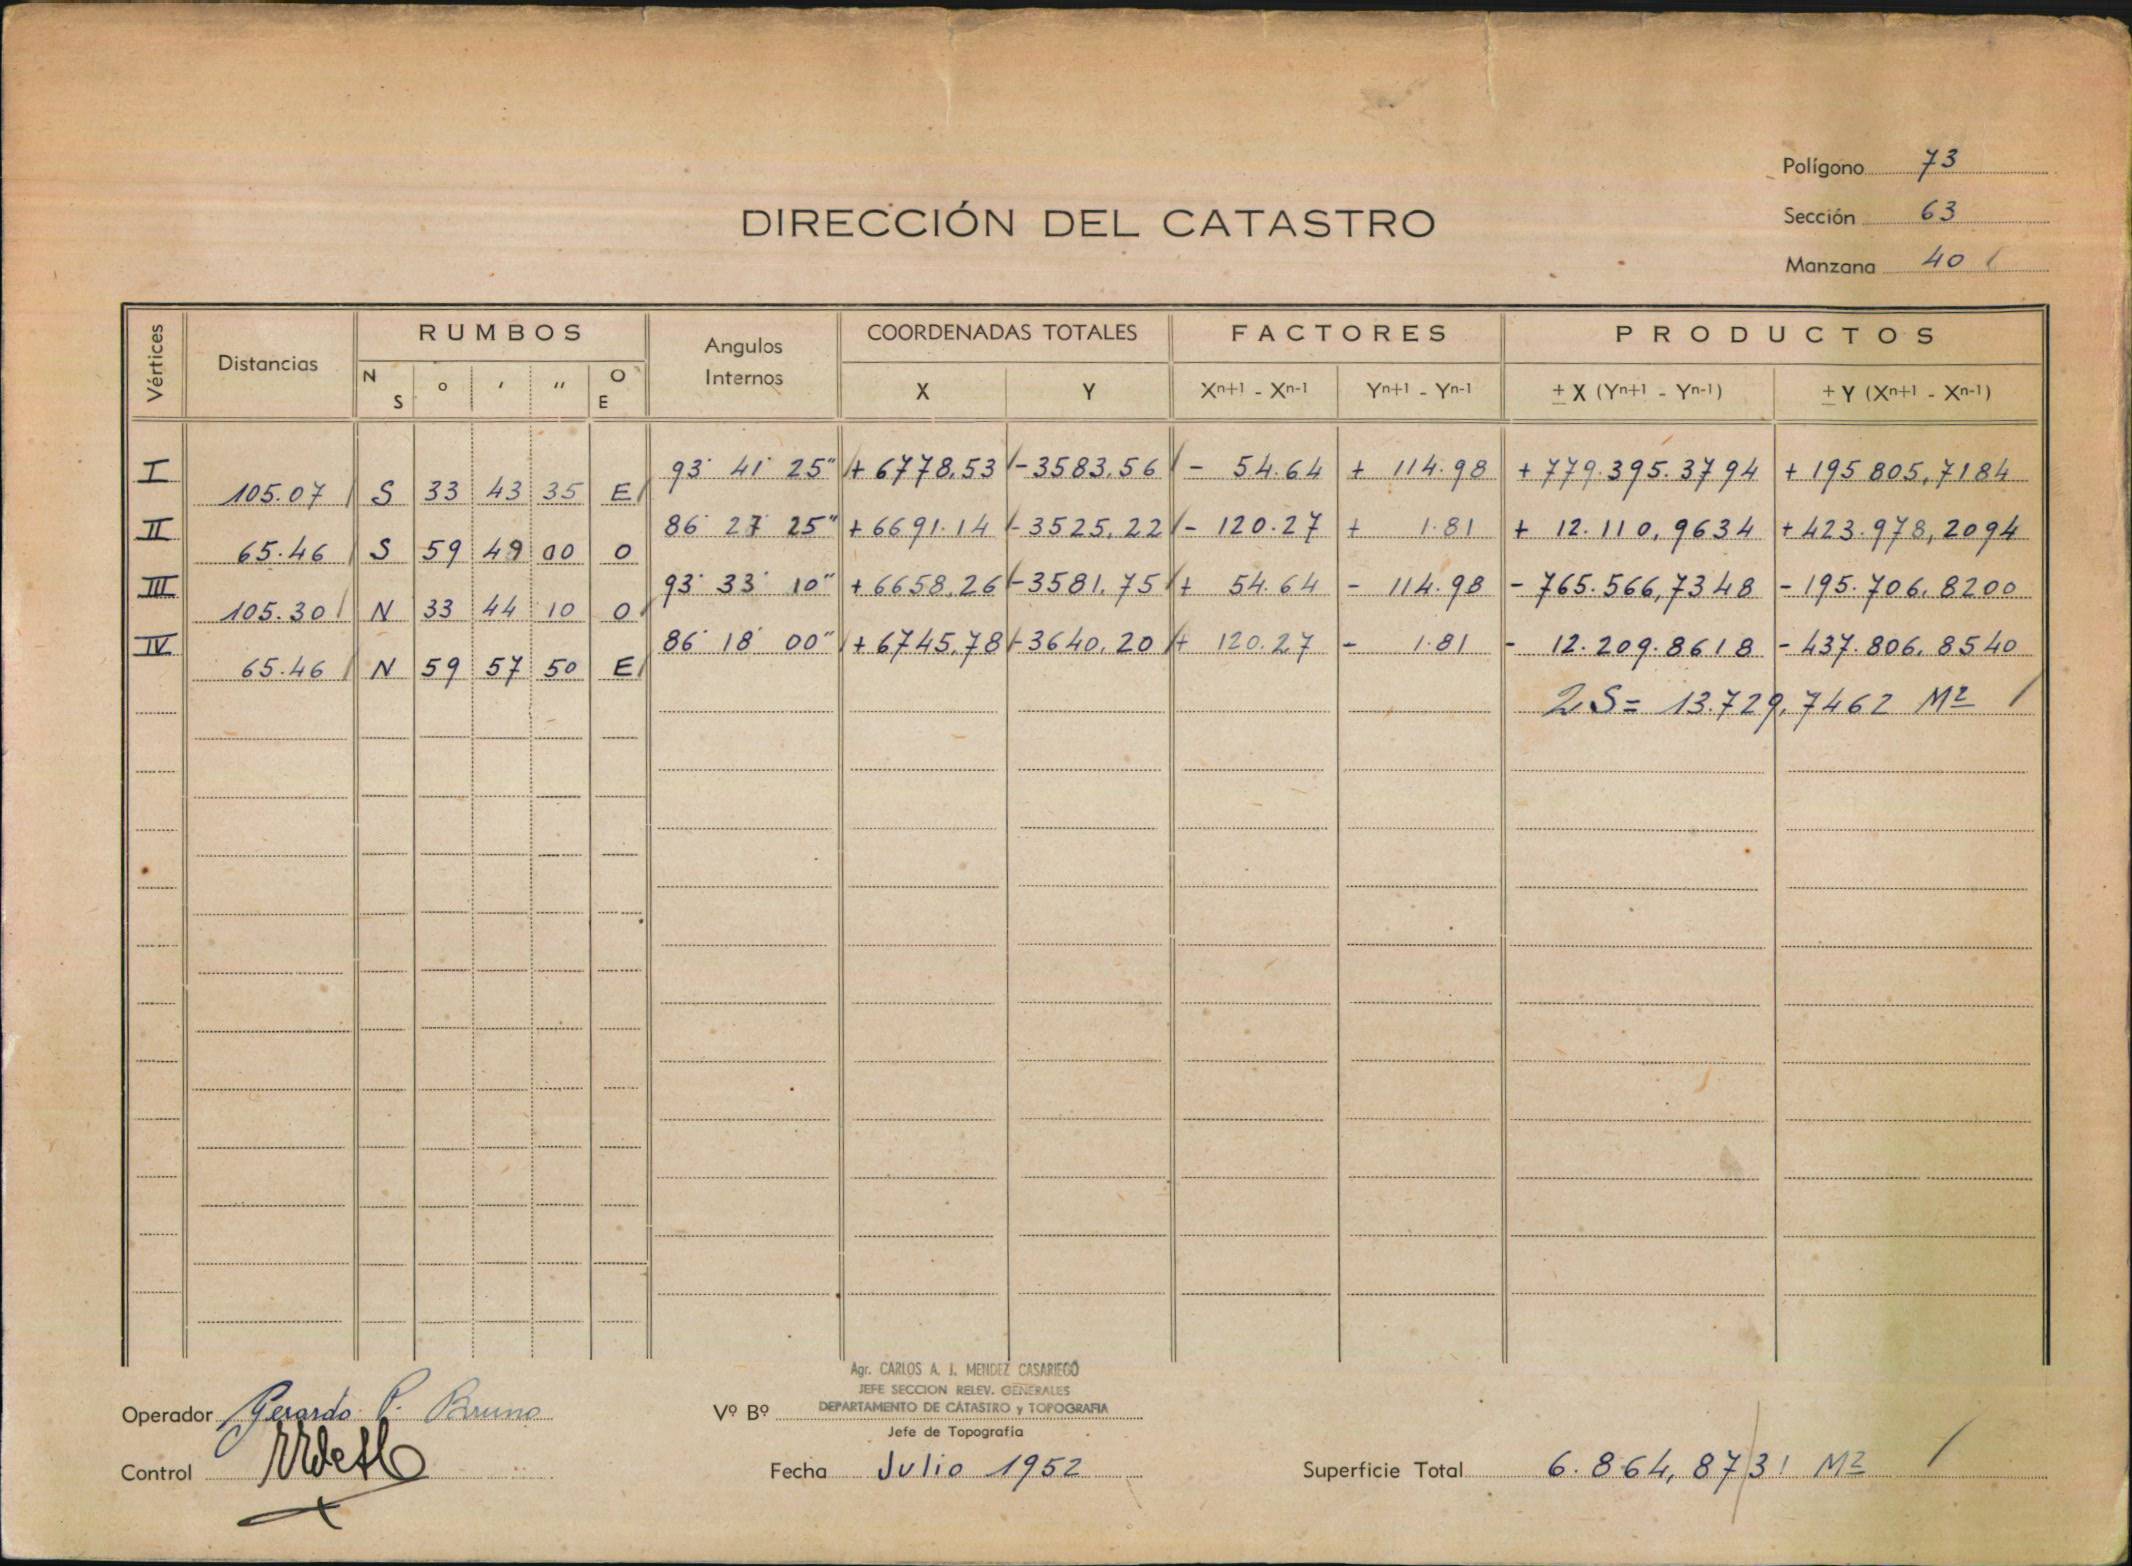 Polígono 73
DIRECCIÓN DEL CATASTRO
Sección 63
Manzana 40
Vértices Distancias RUMBOS Angulos Internos COORDENADAS TOTALES FACTORES PRODUCTOS
N S ° ' '' O E X Y Xn+1 - Xn-1 Yn+1 - Yn-1 ± X (Yn+1 - Yn-1) ± Y (Xn+1 - Xn-1)
I 93° 41' 25" + 6778,53 - 3583,56 - 54.64 + 114.98 + 779.395.3794 + 195 805,7184
105.07 S 33 43 35 E
II 86° 27' 25" + 6691.14 - 3525,22 - 120.27 + 1.81 + 12.110,9634 + 423.978,2094
65.46 S 59 49 00 O
III 93° 33' 10" + 6658,26 - 3581,75 + 54.64 - 114.98 - 765.566,7348 - 195.706,8200
105.30 N 33 44 10 O
IV 86° 18' 00" + 6745,78 - 3640,20 + 120.27 - 1.81 - 12.209.8618 - 437.806,8540
65.46 N 59 57 50 E
2S = 13.729,7462 M²
Agr. CARLOS A. J. MENDEZ CASARIEGO
JEFE SECCION RELEV. GENERALES
Operador Gerardo P. Bruno Vº Bº DEPARTAMENTO DE CATASTRO y TOPOGRAFIA
Jefe de Topografía
Control Fecha Julio 1952 Superficie Total 6.864,8731 M²